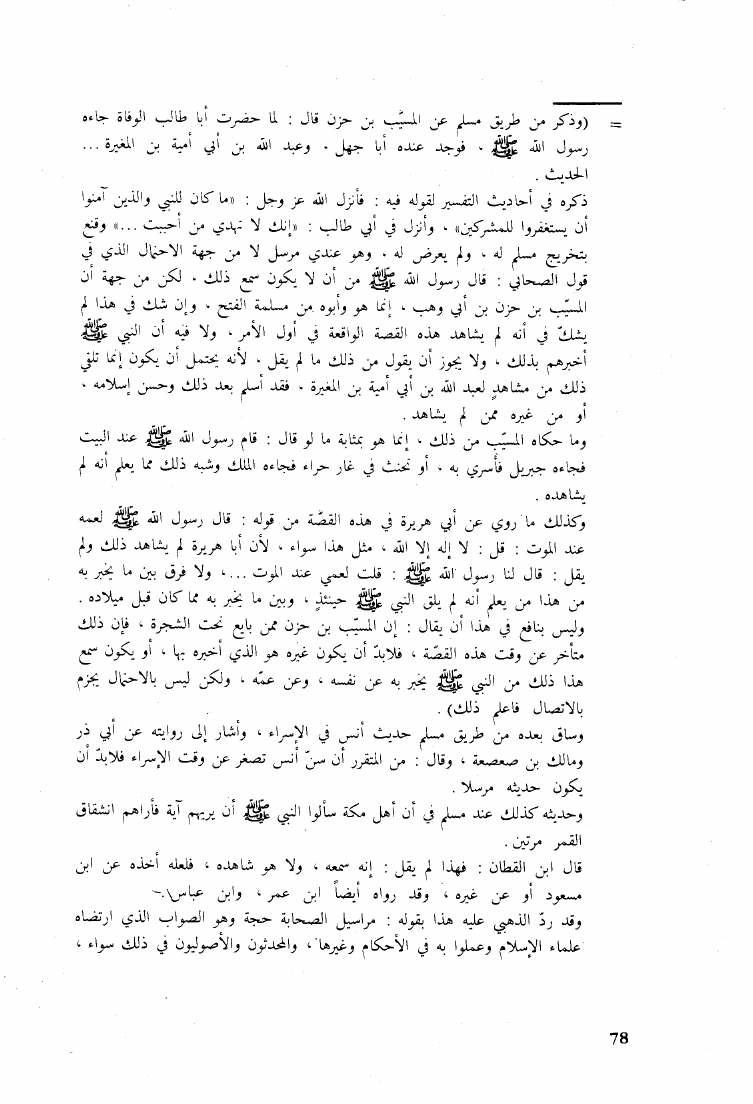 = (وذكر من طريق مسلم عن المسيَّب بن حزن قال : لما حضرت أبا طالب الوفاة جاءه
رسول الله ﷺ ، فوجد عنده أبا جهل ، وعبد الله بن أبي أمية بن المغيرة ...
الحديث .
ذكره في أحاديث التفسير لقوله فيه : فأنزل الله عز وجل : «ما كان للنبي والذين آمنوا
أن يستغفروا للمشركين» ، وأنزل في أبي طالب : «إنك لا تهدي من أحببت ...» وقنع
بتخريج مسلم له ، ولم يعرض له ، وهو عندي مرسل لا من جهة الاحتمال الذي في
قول الصحابي : قال رسول الله ﷺ من أن لا يكون سمع ذلك ، لكن من جهة أن
المسيّب بن حزن بن أبي وهب ، إنما هو وأبوه من مسلمة الفتح ، وإن شك في هذا لم
يشكّ في أنه لم يشاهد هذه القصة الواقعة في أول الأمر ، ولا فيه أن النبي ﷺ
أخبرهم بذلك ، ولا يجوز أن يقول من ذلك ما لم يقل ، لأنه يحتمل أن يكون إنما تلقى
ذلك من مشاهدٍ لعبد الله بن أبي أمية بن المغيرة ، فقد أسلم بعد ذلك وحسن إسلامه ،
أو من غيره ممن لم يشاهد .
وما حكاه المسيّب من ذلك ، إنما هو بمثابة ما لو قال : قام رسول الله ﷺ عند البيت
فجاءه جبريل فأسري به ، أو تحنث في غار حراء فجاءه الملك وشبه ذلك مما يعلم أنه لم
يشاهده .
وكذلك ما روي عن أبي هريرة في هذه القصَّة من قوله : قال رسول الله ﷺ لعمه
عند الموت : قل : لا إله إلا الله ، مثل هذا سواء ، لأن أبا هريرة لم يشاهد ذلك ولم
يقل : قال لنا رسول الله ﷺ : قلت لعمي عند الموت ... ، ولا فرق بين ما يخبر به
من هذا من يعلم أنه لم يلق النبي ﷺ حينئذٍ ، وبين ما يخبر به مما كان قبل ميلاده .
وليس بنافع في هذا أن يقال : إن المسيّب بن حزن ممن بايع تحت الشجرة ، فإن ذلك
متأخر عن وقت هذه القصّة ، فلابدّ أن يكون غيره هو الذي أخبره بها ، أو يكون سمع
هذا ذلك من النبي ﷺ يخبر به عن نفسه ، وعن عمّه ، ولكن ليس بالاحتمال يجزم
بالاتصال فاعلم ذلك) .
وساق بعده من طريق مسلم حديث أنس في الإسراء ، وأشار إلى روايته عن أبي ذر
ومالك بن صعصعة ، وقال : من المتقرر أن سنّ أنس تصغر عن وقت الإسراء فلابدّ أن
يكون حديثه مرسلا .
وحديثه كذلك عند مسلم في أن أهل مكة سألوا النبي ﷺ أن يريهم آية فأراهم انشقاق
القمر مرتين .
قال ابن القطان : فهذا لم يقل : إنه سمعه ، ولا هو شاهده ، فلعله أخذه عن ابن
مسعود أو عن غيره ، وقد رواه أيضاً ابن عمر ، وابن عباس
وقد ردّ الذهبي عليه هذا بقوله : مراسيل الصحابة حجة وهو الصواب الذي ارتضاه
علماء الإسلام وعملوا به في الأحكام وغيرها ، والمحدثون والأصوليون في ذلك سواء ،
78